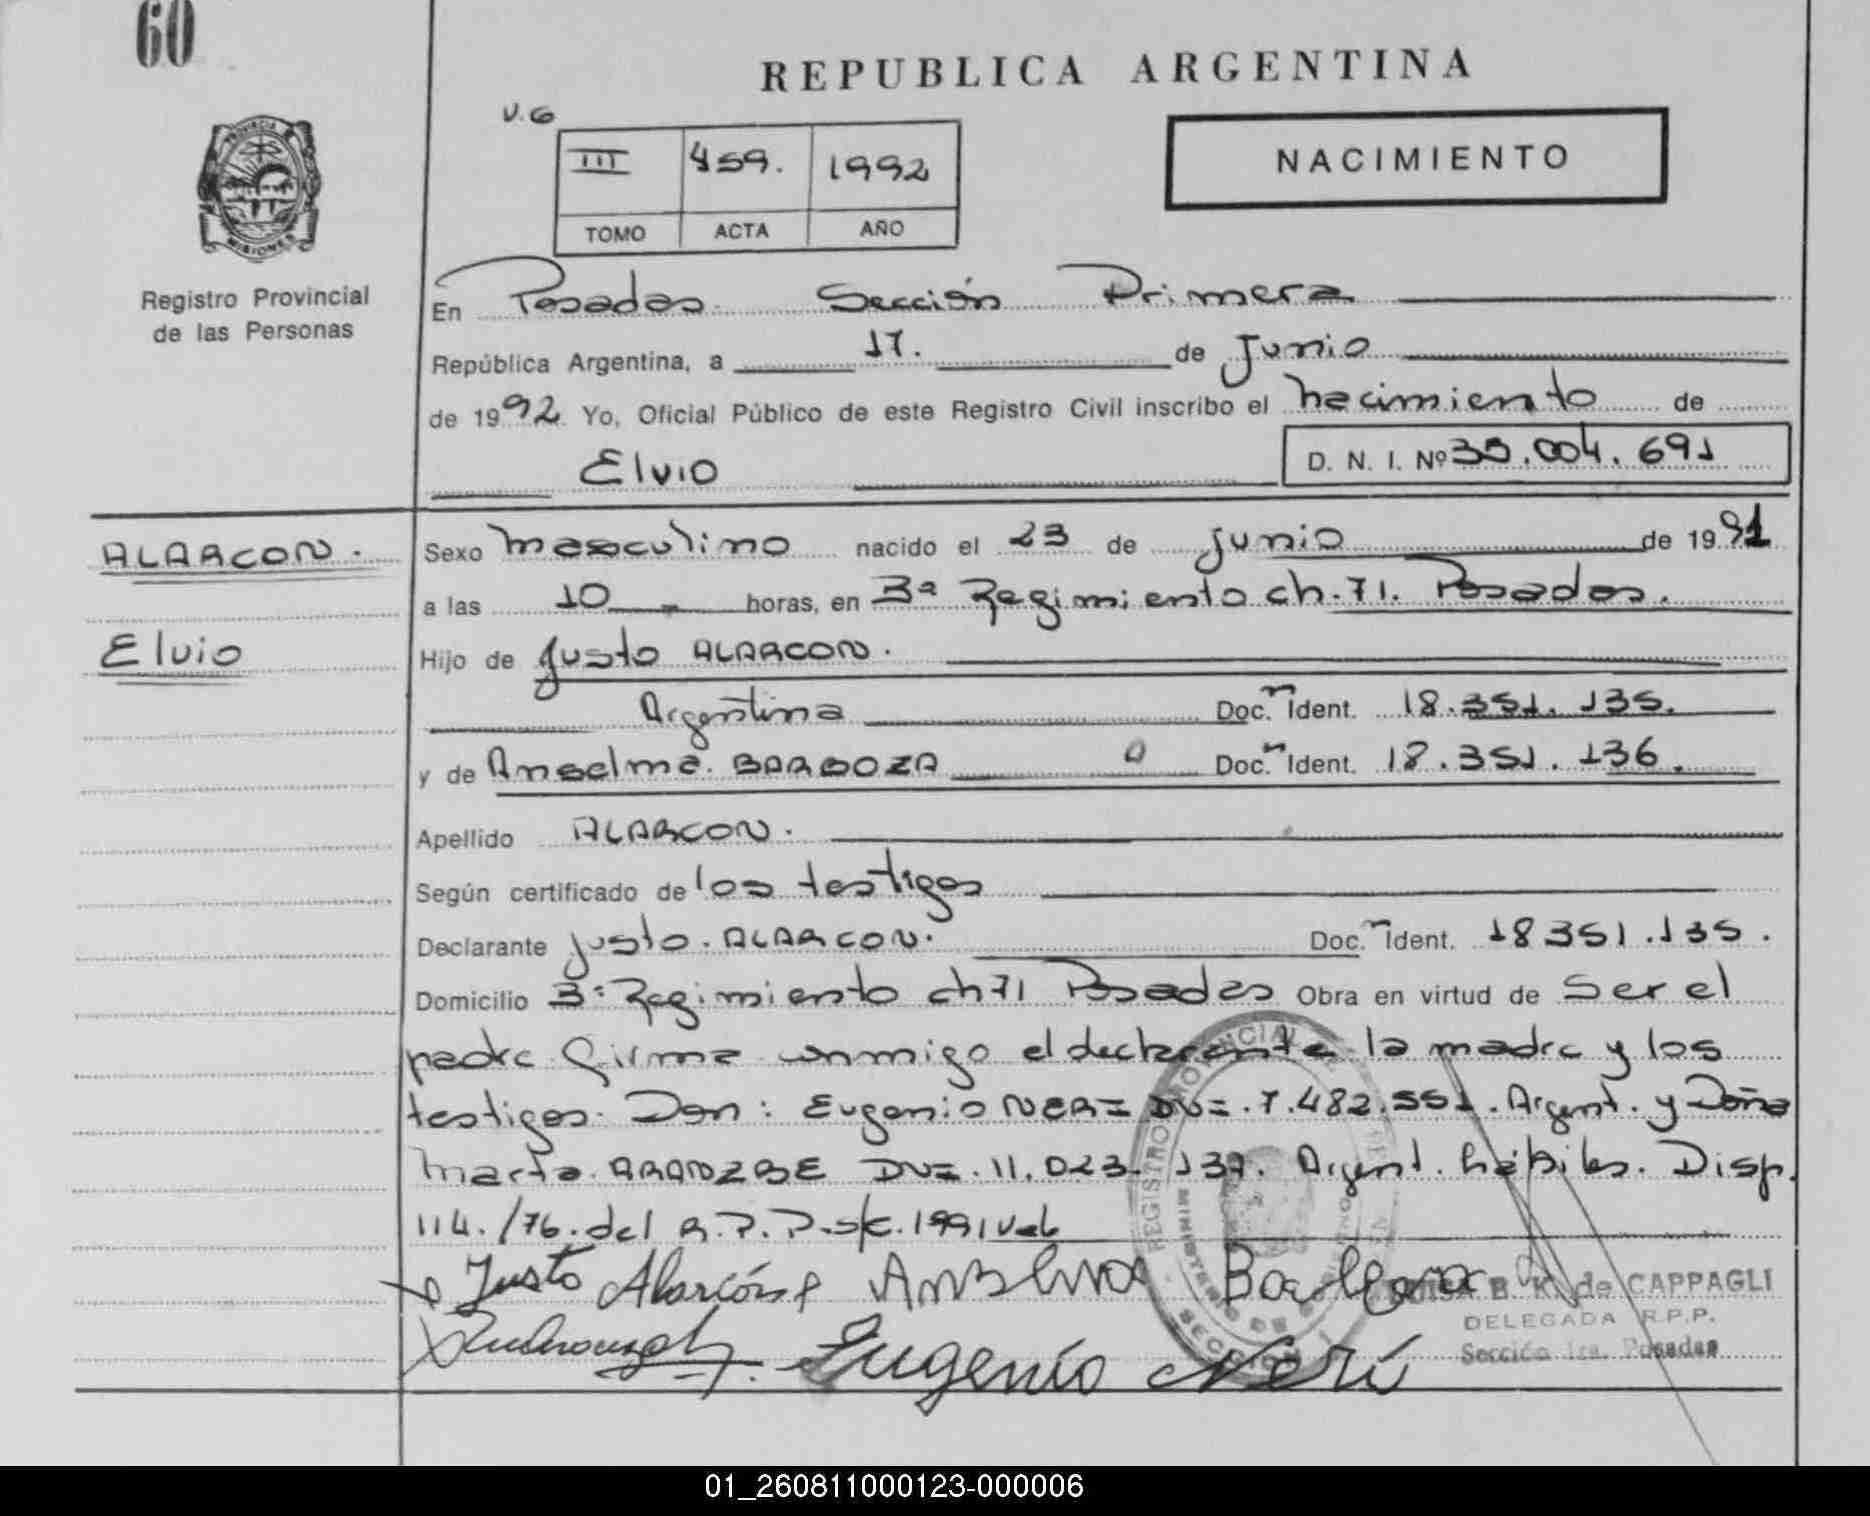 60
REPUBLICA ARGENTINA
V.G
III 459. 1992
TOMO ACTA AÑO
NACIMIENTO
PROVINCIA
MISIONES
Registro Provincial
de las Personas
En Posadas Sección Primera
República Argentina, a 17. de Junio
de 1992 Yo, Oficial Público de este Registro Civil inscribo el nacimiento de
Elvio D. N. I. Nº 35.004.691
ALARCON.
Elvio
Sexo masculino nacido el 23 de junio de 1991
a las 10 horas, en 3ª Regimiento ch.71. Posadas.
Hijo de Justo ALARCON.
Argentina Doc. Ident. 18.351.135.
y de Anselma. BARBOZA Doc. Ident. 18.351.136.
Apellido ALARCON.
Según certificado de los testigos
Declarante Justo. ALARCON. Doc. Ident. 18351.135.
Domicilio 3ª Regimiento ch71 Posadas Obra en virtud de Ser el
padre Firma conmigo el declarante la madre y los
testigos. Don: Eugenio NERI DNI. 7.482.551. Argent. y Doña
Marta DNI. 11.023.137. Argent. hábiles. Disp.
114./76. del R.P.P. s/c. 1991
Justo Alarcón Anselma Barboza
Eugenio Neri
REGISTRO PROVINCIAL
MINISTERIO DE GOBIERNO
SECCION 1
LUISA B. K. de CAPPAGLI
DELEGADA R.P.P.
Sección 1ra. Posadas
01_260811000123-000006